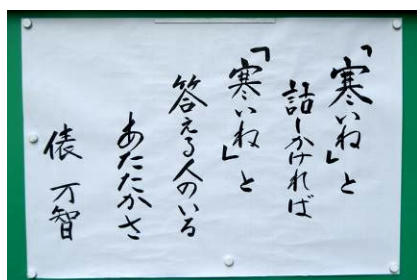 「寒いね」と
話しかければ
「寒いね」と
答える人のいる
あたたかさ
俵 万智